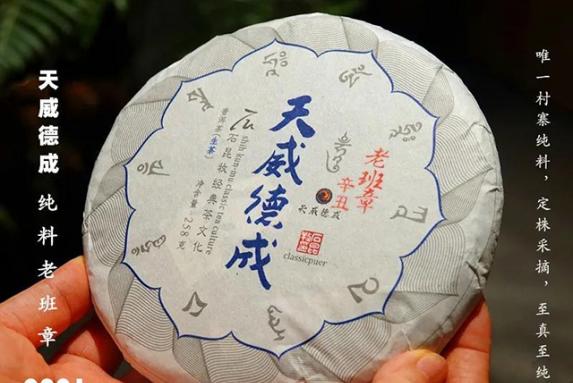 天威德成 纯料老班章
唯一村寨纯料，定株采摘，至真至纯
天威德成
老班章
辛丑
天威德成
classicpuer
石昆牧经典茶文化
shih kun-mu classic tea culture
普洱茶(生茶)
净含量:258克